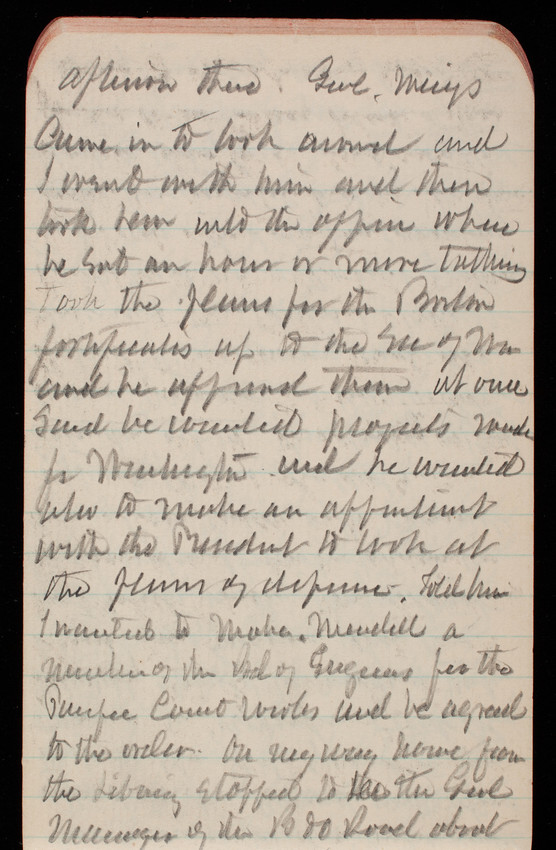 afternoon there. Genl. Meigs
Came in to look around and
I went with him and then
took him into the office where
he sat an hour or more talking
Took the plans for the Boston
fortificates up to the Sec of War
and he approved them at once
Said he wanted projects made
for Washington and he wanted
also to make an appointment
with the President to look at
the plans of defense. Told him
I wanted to make Mendell a
member of the Bd of Engineers for the
Pacific Coast works and he agreed
to the order. On my way home from
the Library stopped to see the Genl
Manager of the B & O Road about